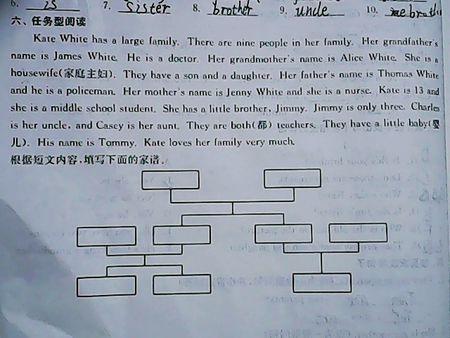 6. is 7. Sister 8. brother 9. uncle 10.
六、任务型阅读
Kate White has a large family. There are nine people in her family. Her grandfather's
name is James White. He is a doctor. Her grandmother's name is Alice White. She is a
housewife(家庭主妇). They have a son and a daughter. Her father's name is Thomas White
and he is a policeman. Her mother's name is Jenny White and she is a nurse. Kate is 13 and
she is a middle school student. She has a little brother, Jimmy. Jimmy is only three. Charles
is her uncle, and Casey is her aunt. They are both(都) teachers. They have a little baby(婴
儿). His name is Tommy. Kate loves her family very much.
根据短文内容,填写下面的家谱.